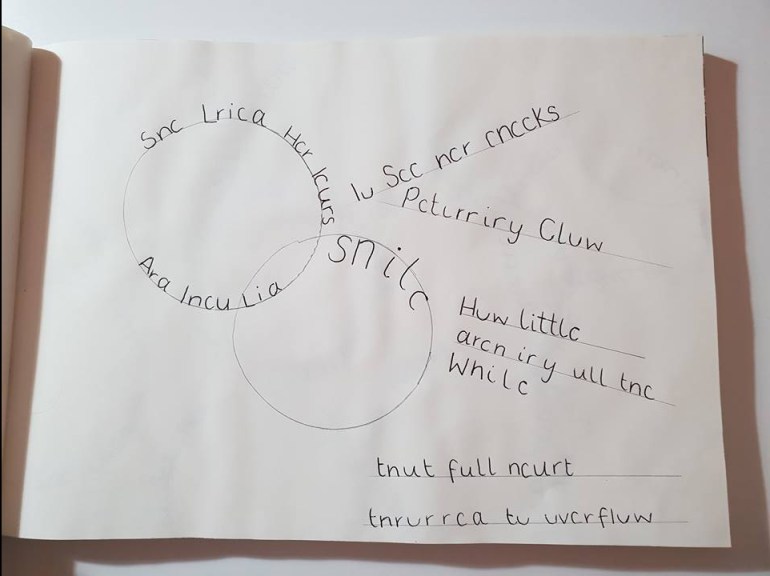 Snc Lrica Hcr Icurs
Ara Incu Lia
Iu Scc ncr cnccks
Pcturriry Cluw
snilc
Huw littlc
arcn iry ull tnc
Whilc
tnut full ncurt
tnrurrca tu uvcrfluw